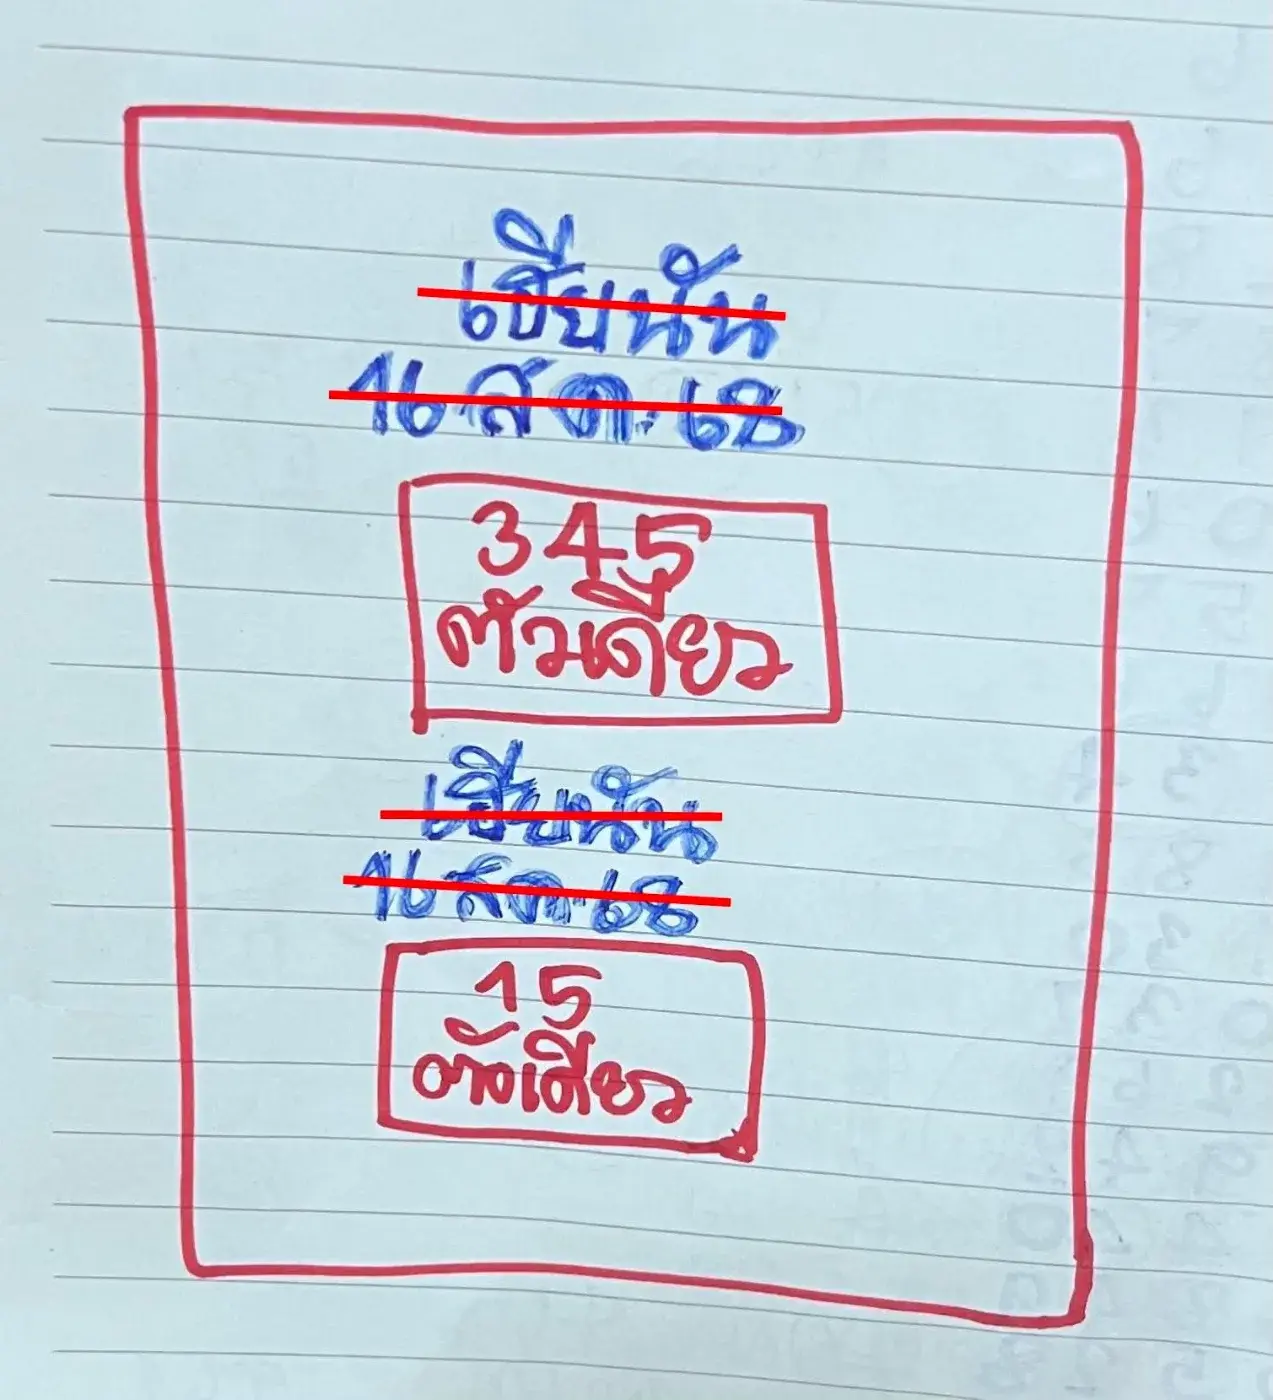 เฮียนัน
16 ส.ค. 68
345
ตัวเดียว
เฮียนัน
16 ส.ค. 68
15
ตัวเดียว